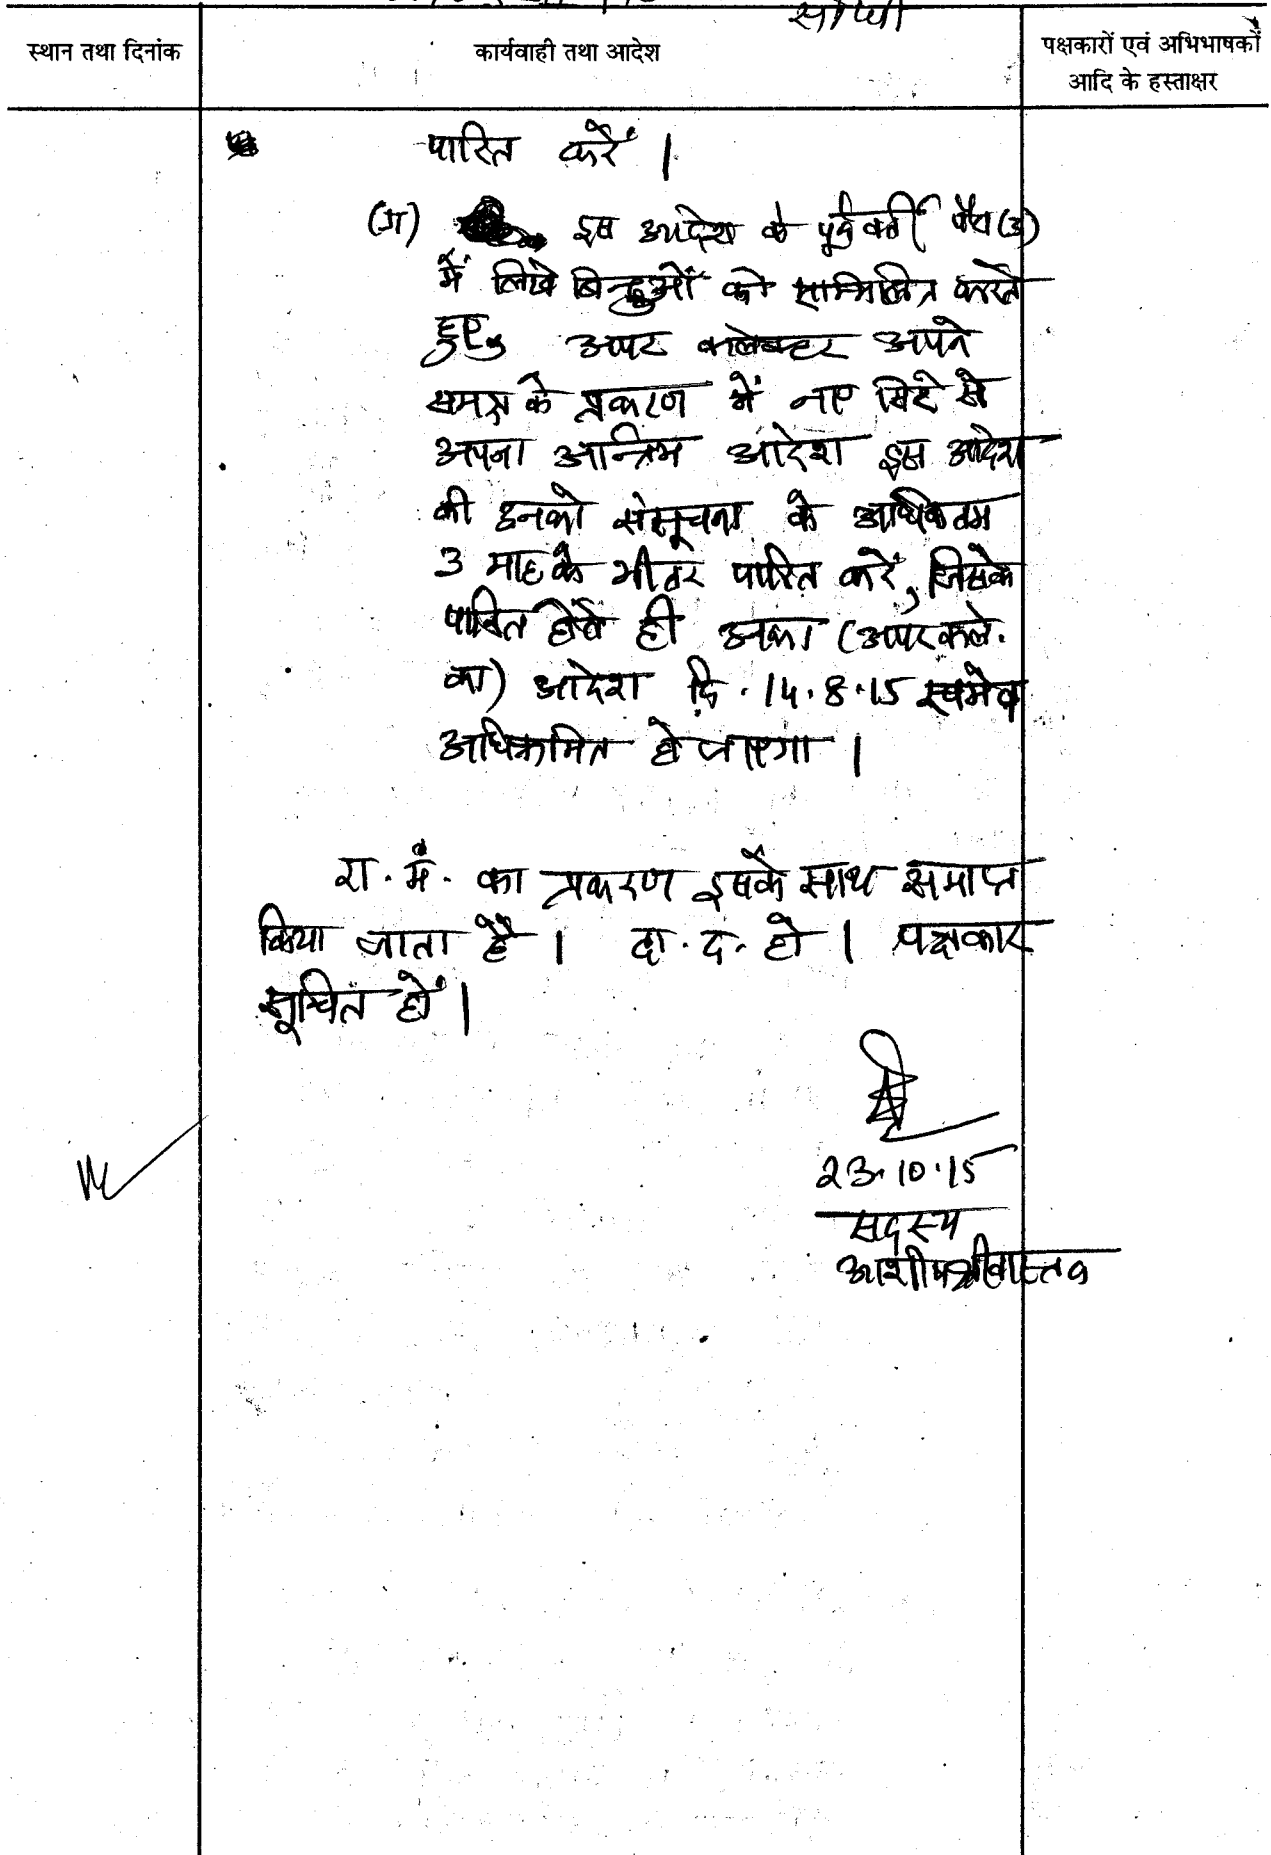 स्थान तथा दिनांक
कार्यवाही तथा आदेश
पक्षकारों एवं अभिभाषकों
आदि के हस्ताक्षर
पारित करें |
इस आदेश के पूर्ववर्ती पैरा
में लिखे बिन्दुओं को सम्मिलित करते
हुए, अपर कलेक्टर अपने
समक्ष के प्रकरण में नए सिरे से
अपना अन्तिम आदेश इस आदेश
की उनको संसूचना के अधिकतम
3 माह के भीतर पारित करें, जिसके
पारित होते ही उनका (अपर कले.
का) आदेश दि. 14.8.15 स्वमेव
अधिक्रमित हो जाएगा |
रा. मं. का प्रकरण इसके साथ समाप्त
किया जाता है | दा. द. हो | पक्षकार
सूचित हों |
23.10.15
सदस्य
आशीष श्रीवास्तव